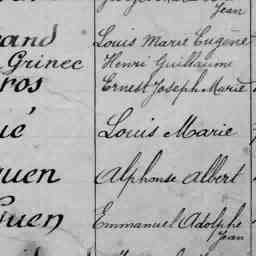 Jean
rand Louis Marie Eugène
Grinec Henri Guillaume
ros Ernest Joseph Marie
ué Louis Marie
uen Alphonse Albert
Guen Emmanuel Adolphe
Jean